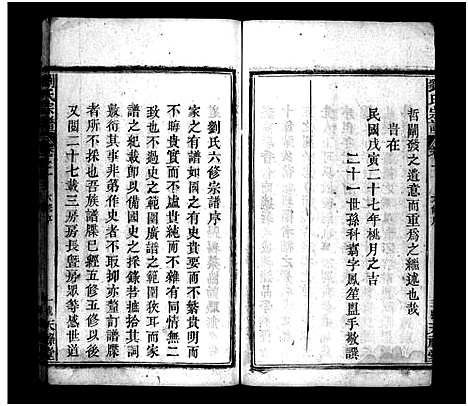 哲嗣發之遺意而重爲之繼述也哉
旹在
民國戊寅二十七年桃月之吉
二十一世孫科嘉字鳳笙盥手敬譔
劉氏六修宗譜序
家之有譜如國之有史貴要而不繁貴明而
不晦貴實而不虛貴純而不雜有同情無二
致也不過史之範圍廣譜之範圍狹耳而家
譜之紀載即以備國史之採錄若摭拾其詞
敷衍其事非第作史者不取抑亦釐訂譜牒
者所不採也吾族譜牒已經五修五修以後
又閱二十七載三房房長豐房眾等感世道